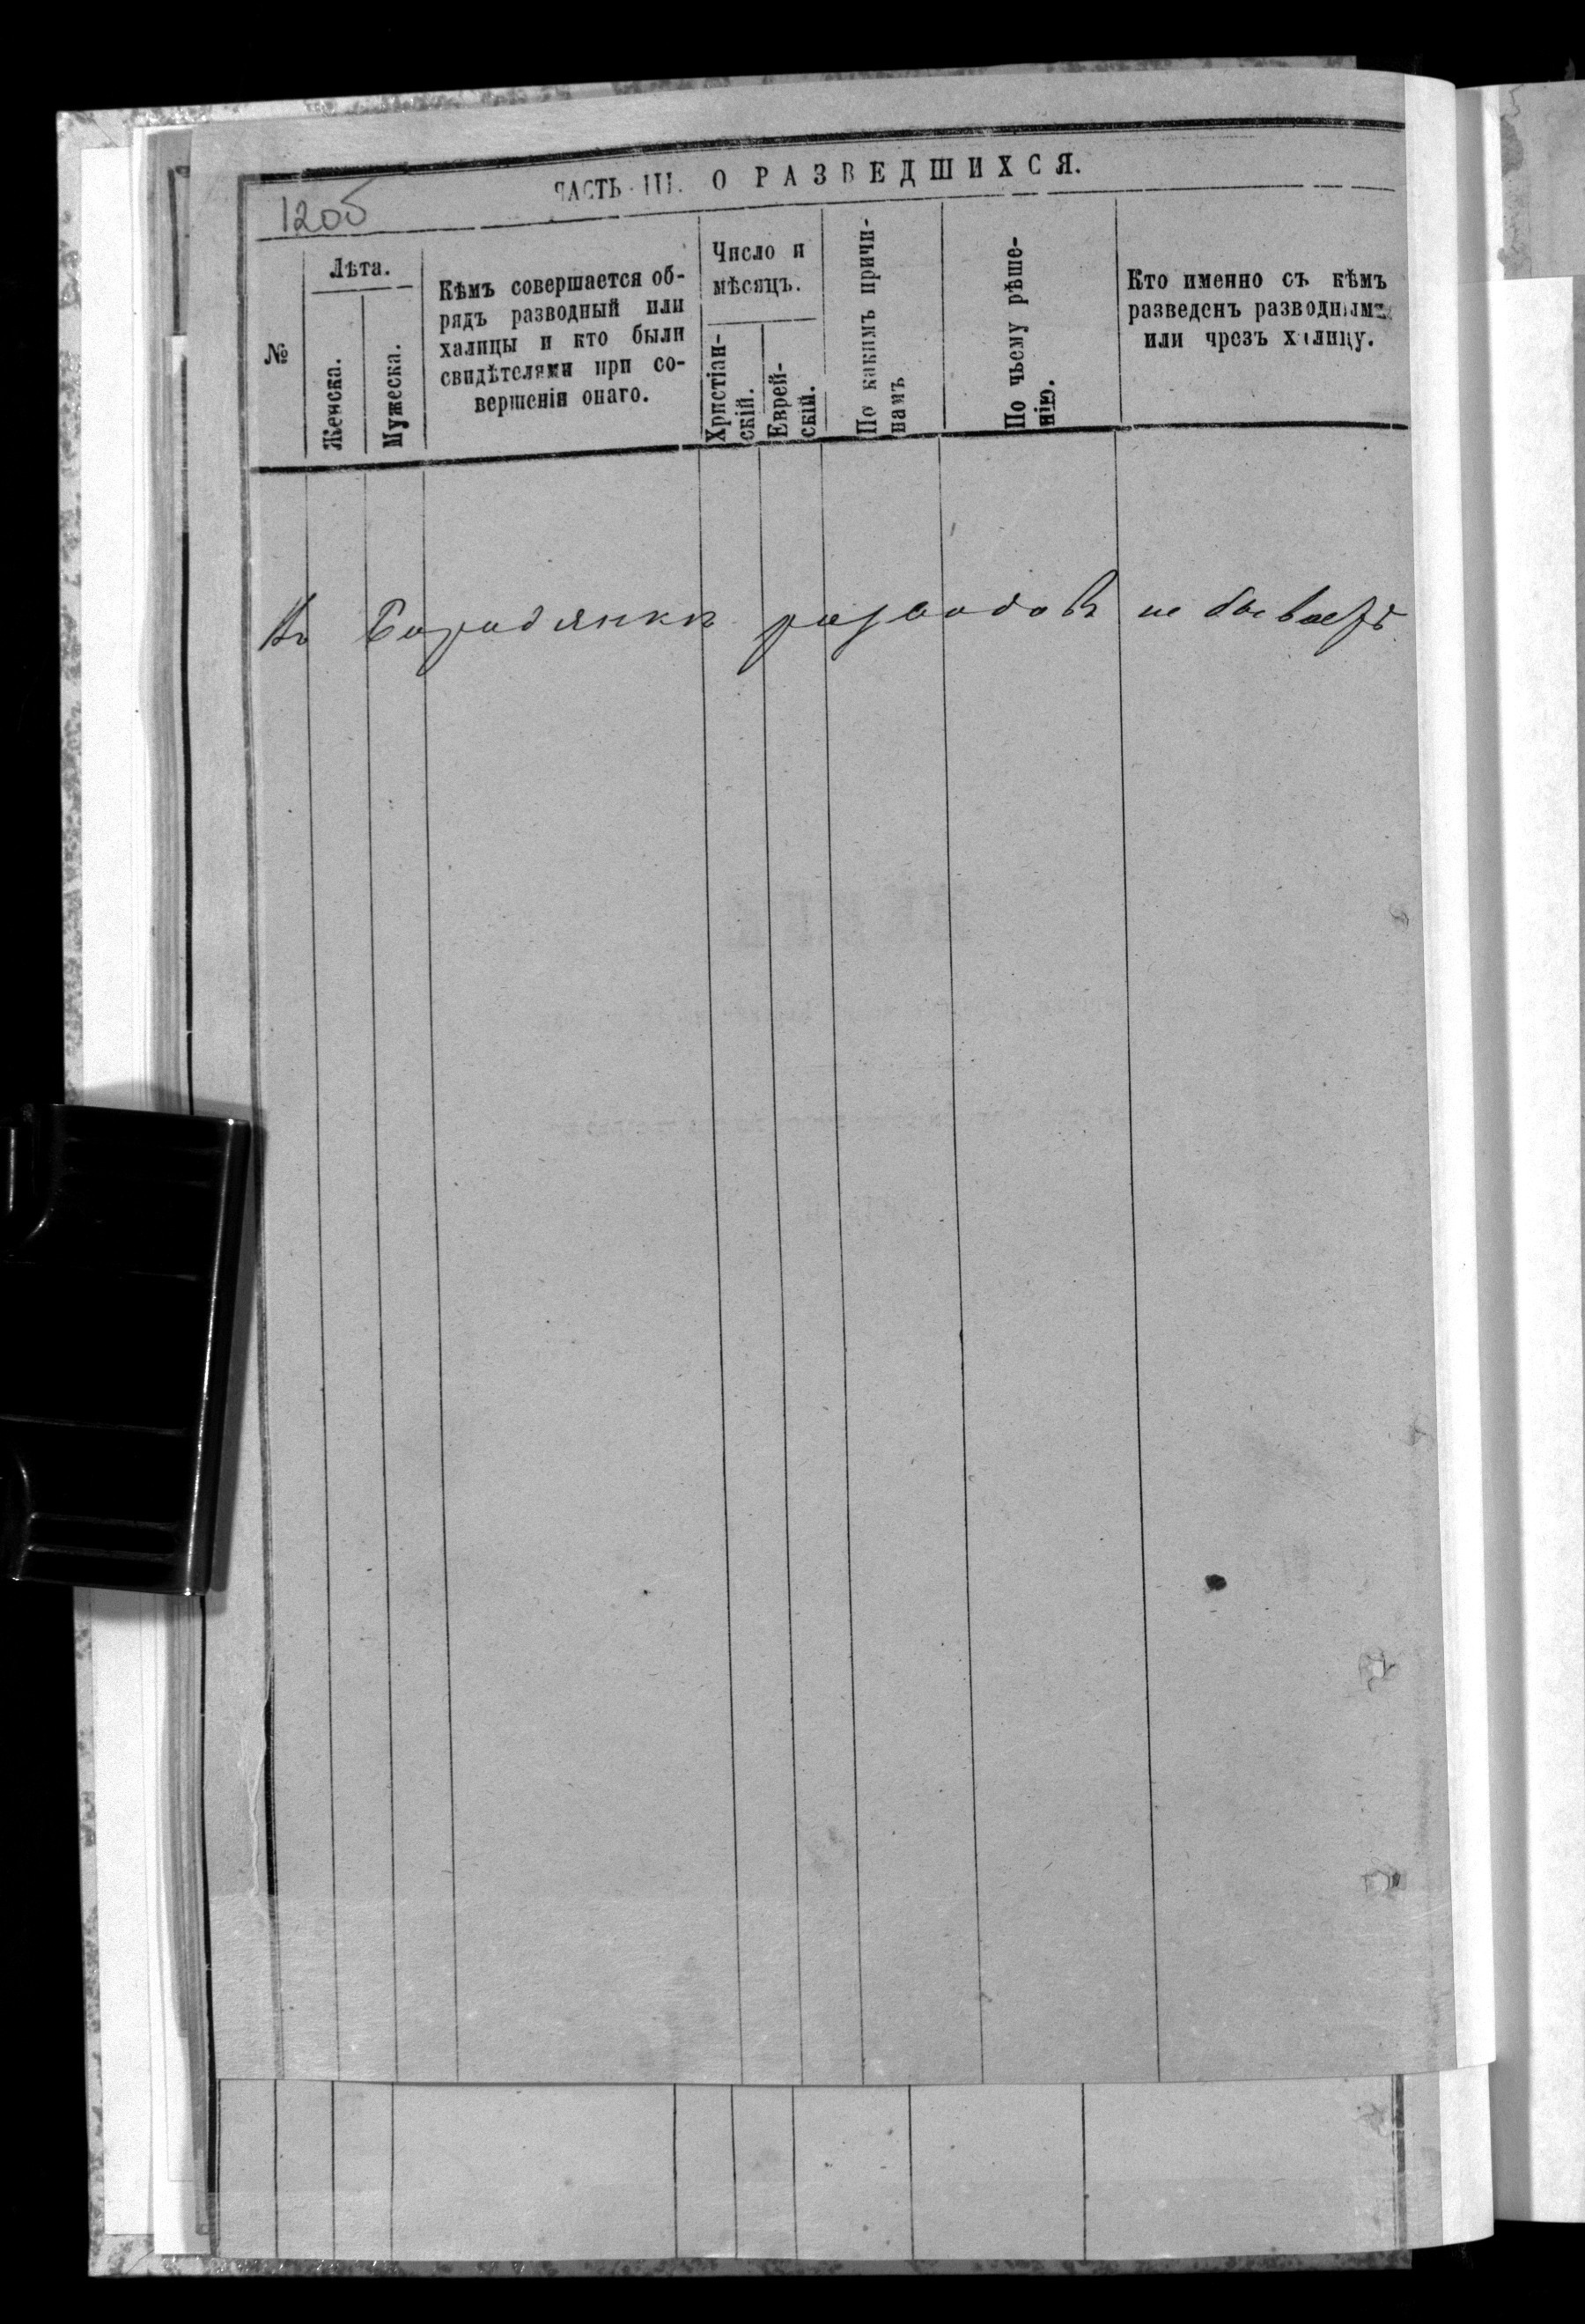 ЧАСТЬ III. О РАЗВЕДШИХСЯ.
1205
№
Лѣта.
Женска.
Мужеска.
Кѣмъ совершается об-
рядъ разводный или
халицы и кто были
свидѣтелями при со-
вершеніи онаго.
Число и
мѣсяцъ.
Христіан-
скій.
Еврей-
скій.
По какимъ причи-
намъ
По чьему рѣше-
нію.
Кто именно съ кѣмъ
разведенъ разводнымъ
или чрезъ халицу.
Въ Бородянкѣ разводовъ не бываетъ